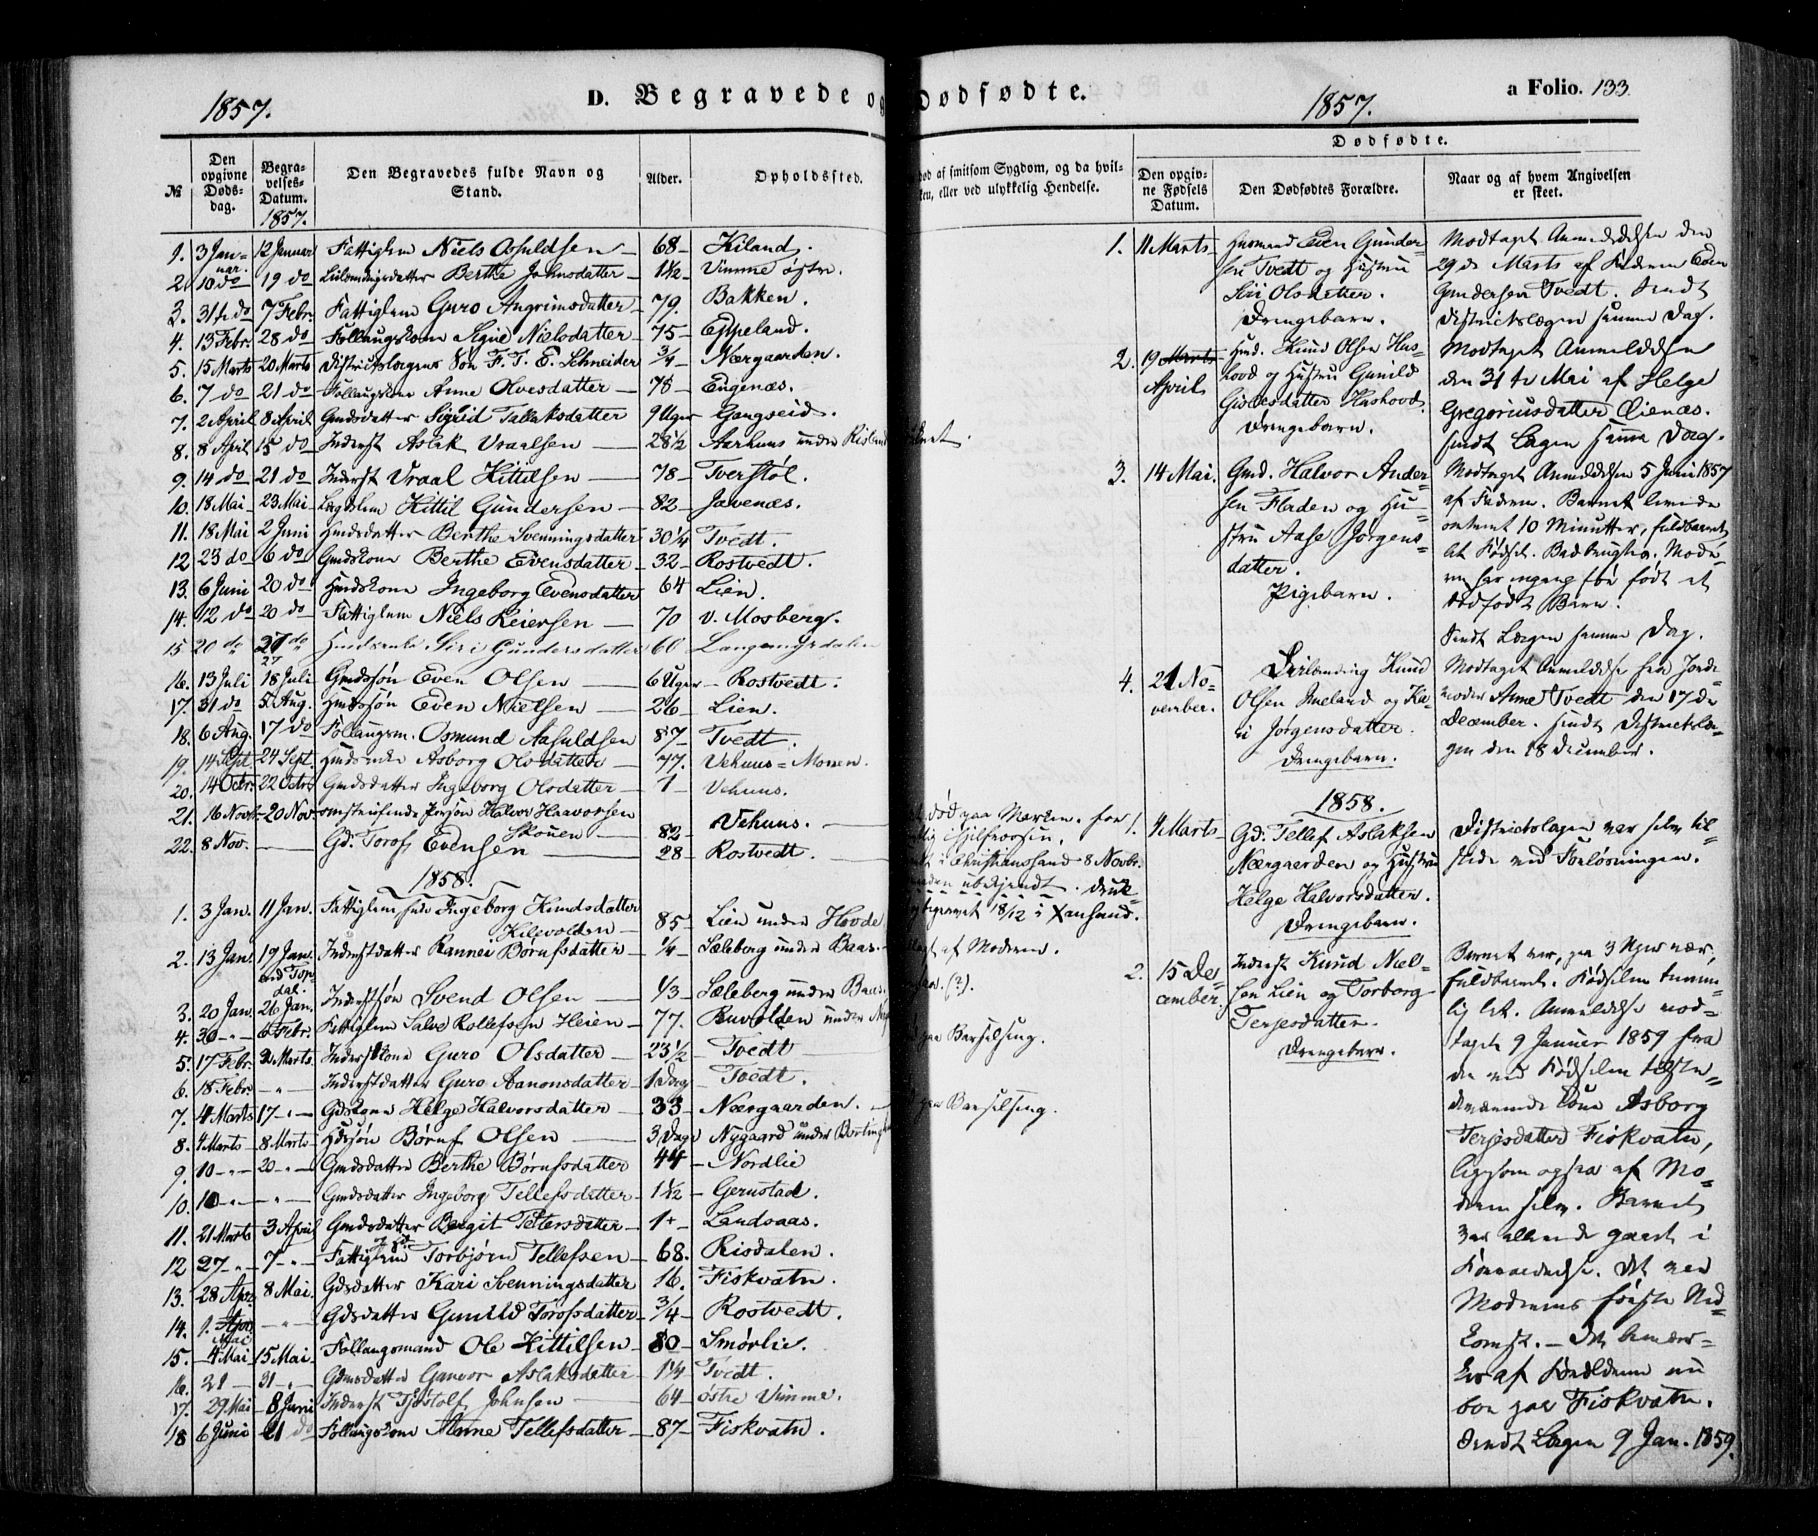 1857.
D. Begravede og
№
Den opgivne Døds-dag.
Begra-velses-Datum.
1857.
Den Begravedes fulde Navn og Stand.
Alder.
Opholdssted.
1. 3 Januar. 12 Januar Fattiglem Niels Osuldsen 68 Kiland.
2. 10 do 19 do Berthe Johnsdatter 1 1/2 Vimme østre.
3. 31te do 7 Febr. Fattiglem Guro Angrimsdatter 79. Bakken.
4. 13 Febr. 28 do Follaugskone Signe Nielsdatter 75 Eppeland.
5. 15 Marts 20 Marts Districtslægens Søn F. T. E. Schneider 3/4 Nærgaarden.
6. 7 do 21 do Follaugskone Anne Olvesdatter 78 Eugenæs.
7. 2 April 8 April Gmdsdatter Sigrid Tallaksdatter 9 Uger Gangseid.
8. 8 April 15 do Inderst Aslak Vraalsen 28 1/2 Aarhuus under Risland
9. 14 do 21 do Inderst Vraal Kittilsen 78 Tverstøl.
10. 18 Mai 23 Mai Lægdslem Kittil Gundersen 82 Javenæs.
11. 18 Mai 2 Juni Hmdsdatter Berthe Svenningsdatter 30 1/4 Tvedt.
12 23 do 6 do Gmdskone Berthe Evensdatter 32 Rostvedt.
13. 6 Juni 20 do Hmdskone Ingeborg Evensdatter 64 Lien.
14. 12 do 20 do Fattiglem Niels Reiersen 70 v. Mosberg.
15 20 do 27 do Siri Gundersdatter 60 Langemyrdalen
16. 13 Juli 18 Juli Gmdssøn Even Olsen 6 Uger Rostvedt.
17. 31 do 5 Aug. Hmdssøn Even Nielsen 26 Lien.
18. 6 Aug. 17 do Follaugsm. Osmund Aasuldsen 87 Tvedt.
19. 14 Sept. 24 Sept. Asborg Olsdatter 77. Vehuus=Monen.
20. 14 Octbr. 22 Octbr. Gmdsdatter Ingeborg Olsdatter 1 Vehuus.
21. 16 Novbr. 20 Nov. omstreifende Person Halvor Haavorsen Skouen 82 Vehuus.
22. 8 Nov. Gd. Torof Evensen 28 Rostvedt.
1858.
1. 3 Jan. 11 Jan. Fattiglem Ingeborg Knudsdatter Kilevolden 85 Lien under Hovde
2. 13 Jan. 19 Jan. Inderstdatter Rannei Børufsdatter 1/4 Sæleberg under Baas
3. 20 Jan. 26 Jan. Inderstsøn Svend Olsen 1/3 Sæleberg under Baas
4. 30 6 Febr. Fattiglem Salve Rollefsen Heien 77. Ruvolden under
5. 17 Febr. Marts. Inderstkone Guro Olsdatter 23 1/2 Tvedt
6. 18 Febr. Inderstdatter Guro Aanonsdatter 1 Dag Tvedt.
7. 4 Marts 17 Gdskone Helge Halvorsdatter 33 Nærgaarden.
8. 4 Marts 8 Marts Børuf Olsen 3 Dage Nygaard under
9. 10 20 Gmdsdatter Berthe Børufsdatter 44 Nordlie
10. 10 Gmdsdatter Ingeborg Tellefsdatter 1 1/2 Gerustad.
11. 21 Marts 3 April Gmdsdatter Bergit Petersdatter 1 Landsaas.
12 27 7 Fattiglem Torbjørn Tellefsen 68. Risdalen.
13. 28 Apr. 8 Mai. Gdsdatter Kari Svenningsdatter 16. Fiskvatn.
14. 1. Mai Gdsdatter Gunild Torofsdatter 3/4 Rostvedt.
15. 4 Mai 15 Mai Follaugsmand Ole Kittilsen 80 Smørlie.
16. 21 31 Gmdsdatter Gunvor Aslaksdatter 1 1/4 Tvedt.
17. 29 Mai 8 Juni Inderst Tjøstolf Johnsen 64 østre Vimme.
18 6 Juni 21 do Follaugskone Anne Tellefsdatter 87 Fiskvatn.
Dødfødte.
1857.
a Folio. 133.
død af smitsom Sygdom, og da hvil-
ken, eller ved ulykkelig Hendelse.
død paa Marken. for
i Christianssand 8 Novbr.
ubekjendt.
begravet 18/12 i Xansand.
af Moderen.
(?).
paa Barselseng.
paa Barselseng.
Dødfødte.
Den opgiv-ne Fødsels Datum.
Den Dødfødtes Forældre.
Naar og af hvem Angivelsen er skeet.
1. 11 Marts Husmand Even Gunder-
sen Tvedt og Hustru
Siri Olsdatter.
Drengebarn.
Modtaget Anmeldelsen den
29de Marts af Faderen Even
Gundersen Tvedt. Sendt
Districtslægen samme Dag.
2. 19 Marts April Hmd. Knud Olsen Has-
hovd og Hustru Gunild
Gisvesdatter Hashovd.
Drengebarn.
Modtaget Anmeldelsen
den 31te Mai af Helge
Gregoriusdatter Øienæs.
sendt Lægen samme Dag.
3. 14 Mai. Gmd. Halvor Ander-
sen Fladen og Hu-
stru Aase Jørgens-
datter.
Pigebarn.
Modtaget Anmeldelsen 5 Juni 1857
af Faderen. Barnet levede
omtrent 10 Minutter, fuldbaaret,
let Fødsel. Mode-
ren har engang før født et
dødfødt Barn.
Sendt Lægen samme Dag.
4. 21 No-
vember. Knud
Olsen Imeland og Ka-
ri Jørgensdatter.
Drengebarn.
Modtaget Anmeldelse fra Jorde-
moder Anne Tvedt den 17de
December. sendt Districtslæ-
gen den 18 December.
1858.
1. 4 Marts Gd. Tellef Aslaksen
Nærgaarden og Hustru
Helge Halvorsdatter.
Drengebarn.
Districtslægen var selv til-
stede ved Forløsningen.
2. 15 De-
cember. Inderst Knud Niel-
sen Lien og Torborg
Terjesdatter.
Drengebarn.
Barnet var, paa 3 Uger nær,
fuldbaaret. Fødselen temme-
lig let. Anmeldelse mod-
taget 9 Januar 1859 fra
den ved Fødselen tilste-
deværende Kone Asborg
Terjesdatter Fiskvatn,
ligesom ogsaa af Mo-
deren selv. Barnet
var allerede gaaet i
Forraadnelse. Det var
Moderens første Ned-
komst. Det bemær-
kes af Forældrene nu
boe paa Fiskvatn.
Sendt Lægen 9 Jan. 1859.